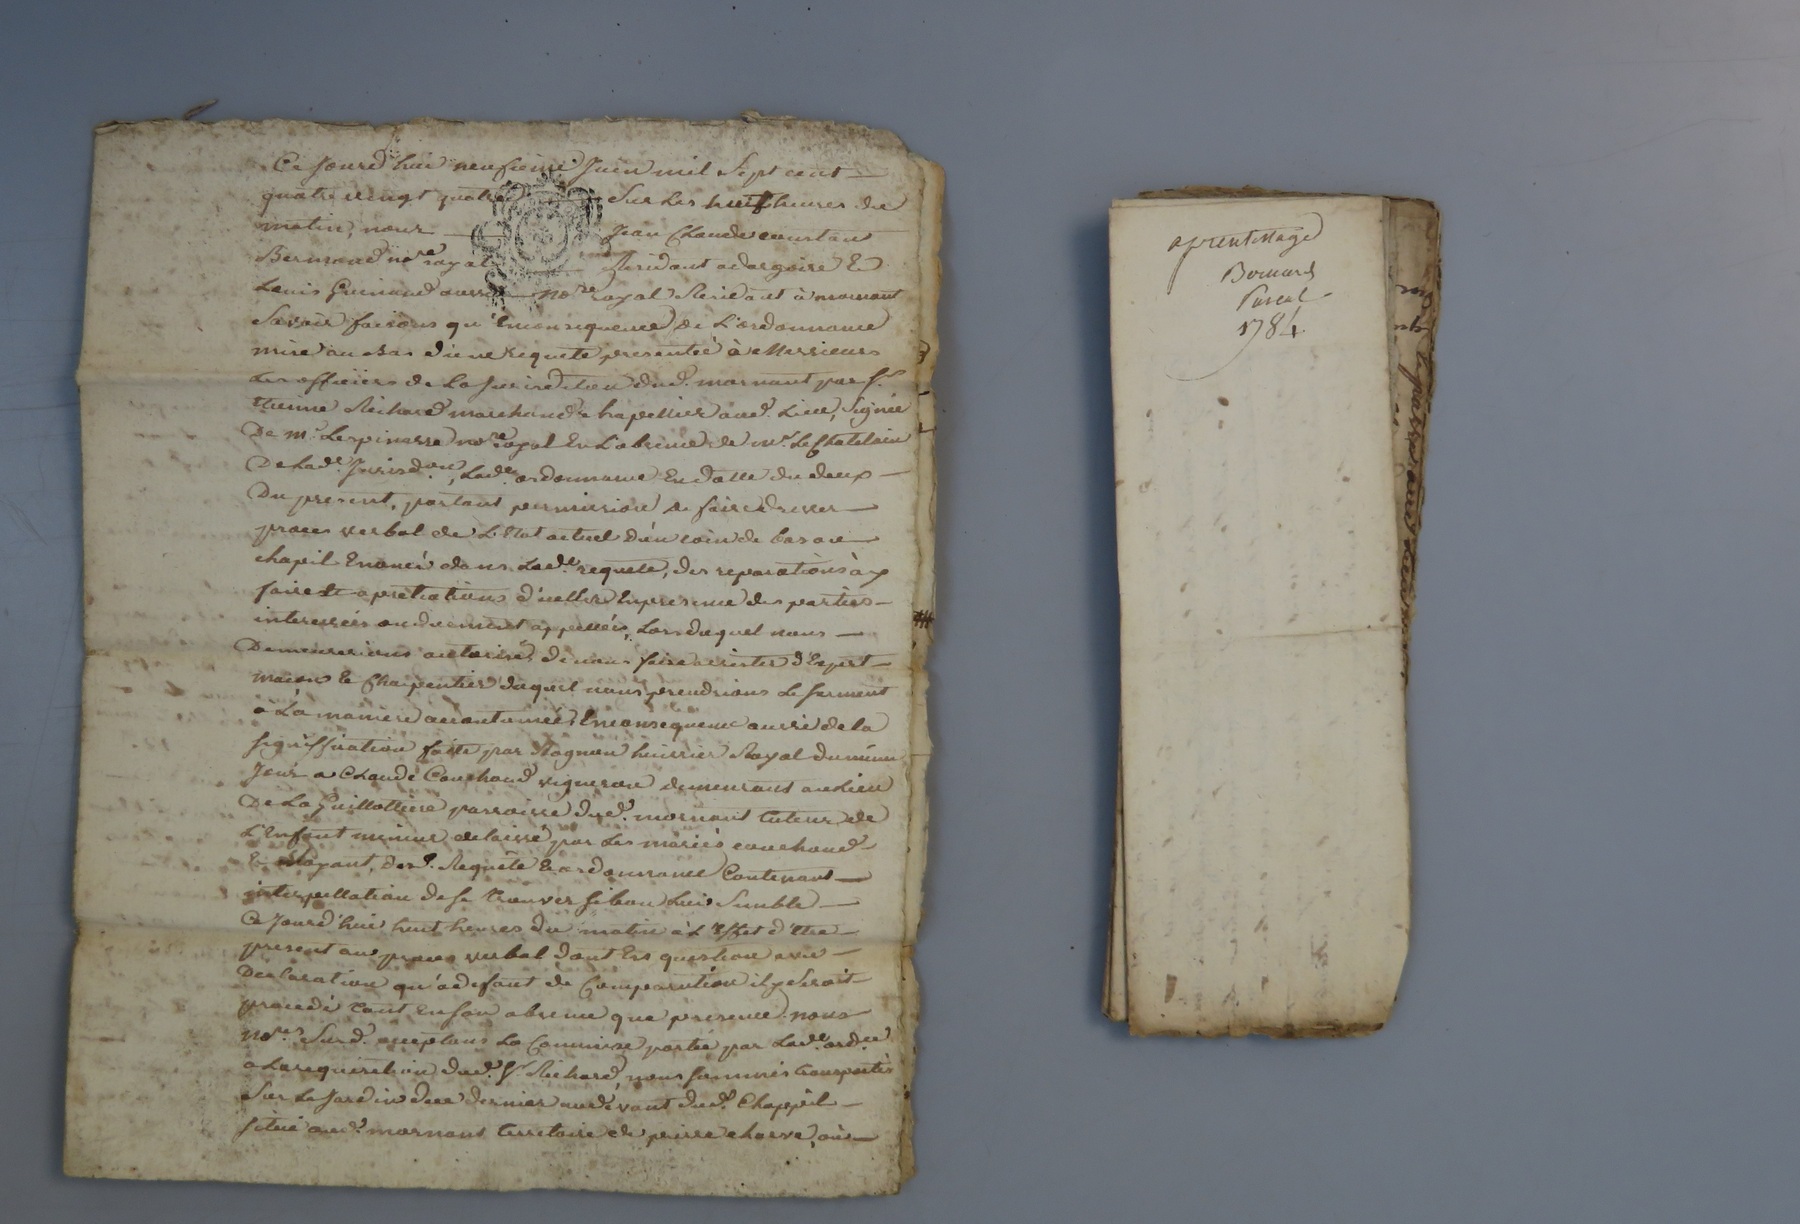 Ce Jourd'hui neufieme Juin mil Sept cent
quatre vingt quatre Sur Les huit heures du
matin, nous Jean Claude constant
Bermond no.re royal Residant a dargoire &
Louis Guinand aussi no.re royal Residant à mornant
Savoir faisons qu'En consequence de L'ordonnance
mise au bas d'une requete presentée à Messieurs
Les officiers de La Jurisdition dud. mornant par S.r
Etienne Richard marchand chapellier aud. Lieu, Signée
De M.e Lespinasse no.re royal En L'absence de mr. Le Chatelain
De Lad.e Jurisd.on, Lad.e ordonnance En datte du deux
Du present, portant permission de faire dresser
proces verbal de L'Etat actuel d'un coin de bas ou
chapit Enoncé dans Lad.e requete, des reparations à y
faire & apretiations d'icelles En presence des parties
interessées ou duement appellées, Lors duquel nous
Demeurerions autorisés de nous faire assister d'Expert
macon & Charpentier duquel nous prendrions Le serment
à La maniere accoutumée, En consequence aussi de la
signiffication faite par Magnin huissier Royal du même
Jour a Claude Couchoud vigneron demeurant au Lieu
De La Guillottiere parroisse dud. mornant tuteur de
L'Enfant mineur delaissé par Les mariés couchoud
& Mayant, desd. Requête & ordonnance Contenant
interpellation de se trouver si bon Lui Semble
Ce Jourd'hui huit heures du matin à L'Effet d'Etre
present au proces verbal dont Est question avec
Declaration qu'à defaut de Comparution il y Seroit
procedé tant En son absence que presence. nous
No.res Susd. acceptans La Commise portée par Lad.e ord.ce
a La requisition dud. S.r Richard, nous sommes transportés
Sur Le Jardin de ce dernier au devant dud. Chappit
situé aud. mornant territoire de pierre charve, où
aprentissage
Bouard
Pascal
1784.